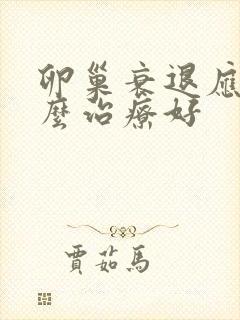 卵巢衰退應
麼治療好
賈茹馬